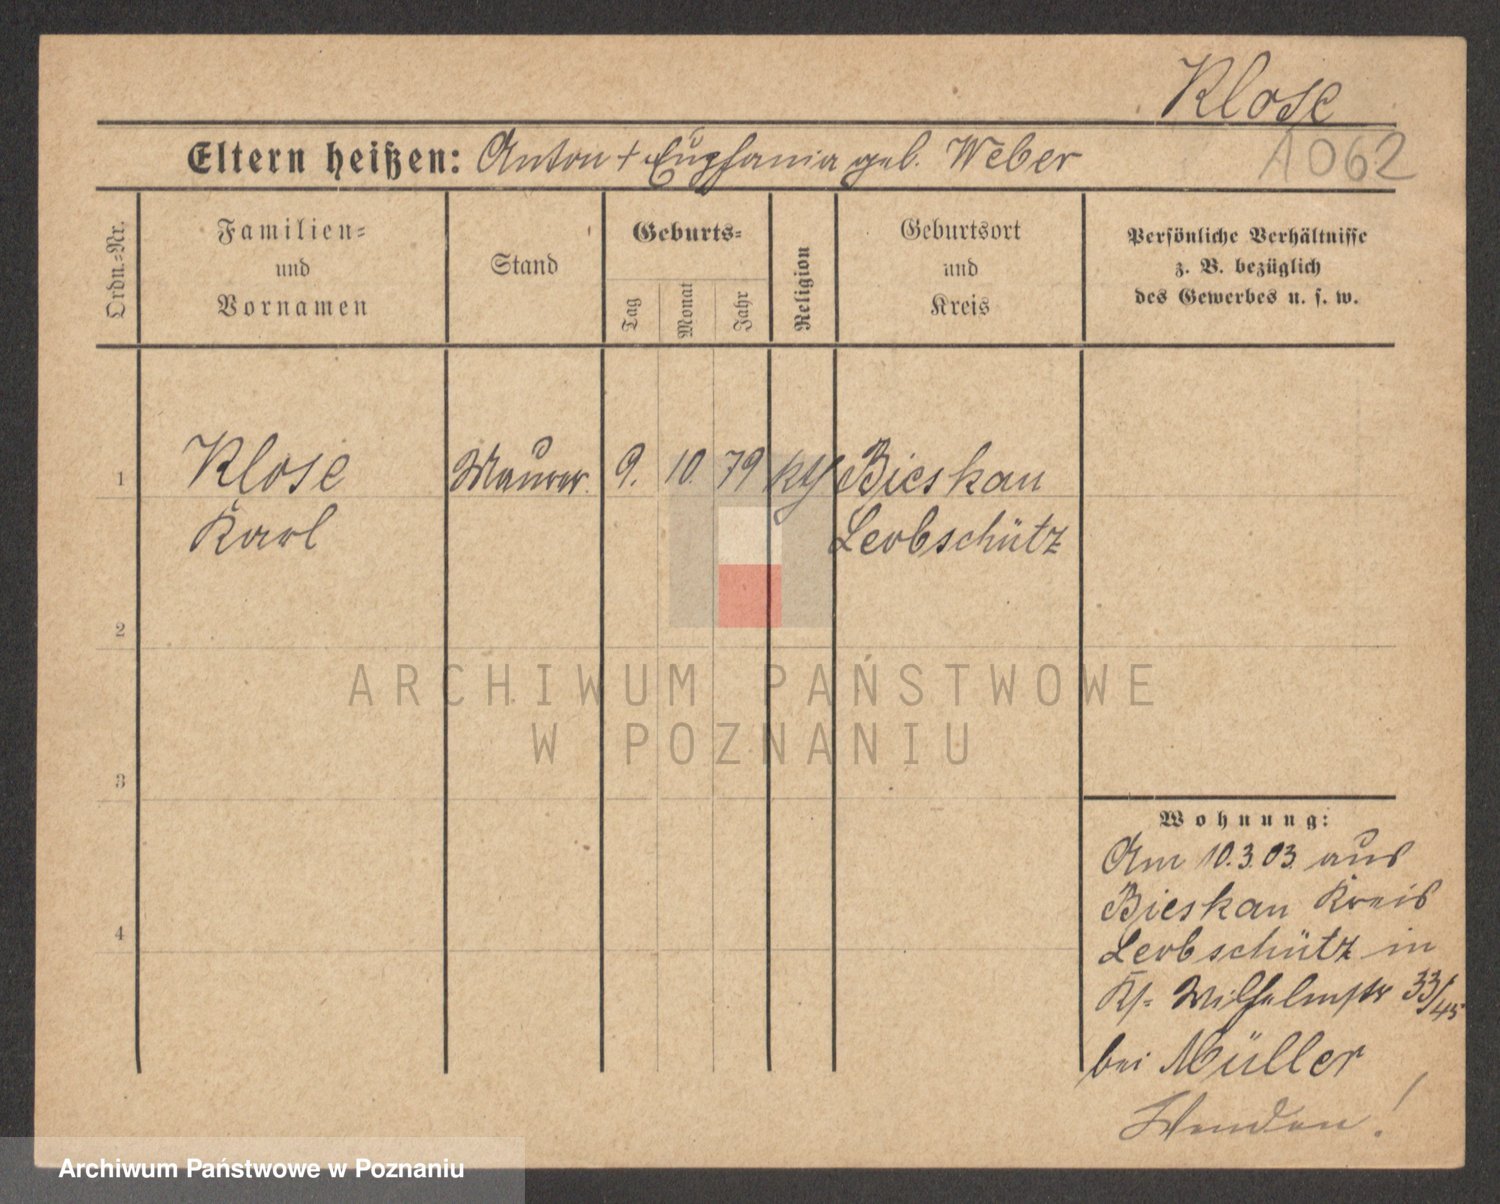 Klose
1062
Eltern heißen: Anton + Eugfania geb. Weber
Ordn.-Nr.
Familien-
und
Vornamen
Stand
Geburts-
Tag
Monat
Jahr
Religion
Geburtsort
und
Kreis
Persönliche Verhältnisse
z. B. bezüglich
des Gewerbes u. s. w.
1
Klose
Karl
Maurer
9.
10
79
Bieskau
Leobschütz
2
ARCHIWUM PAŃSTWOWE
W POZNANIU
3
4
Wohnung:
Am 10.3.03. aus
Bieskau Kreis
Leobschütz in
Wilhelmstr 33/45
bei Müller
Wenden!
Archiwum Państwowe w Poznaniu